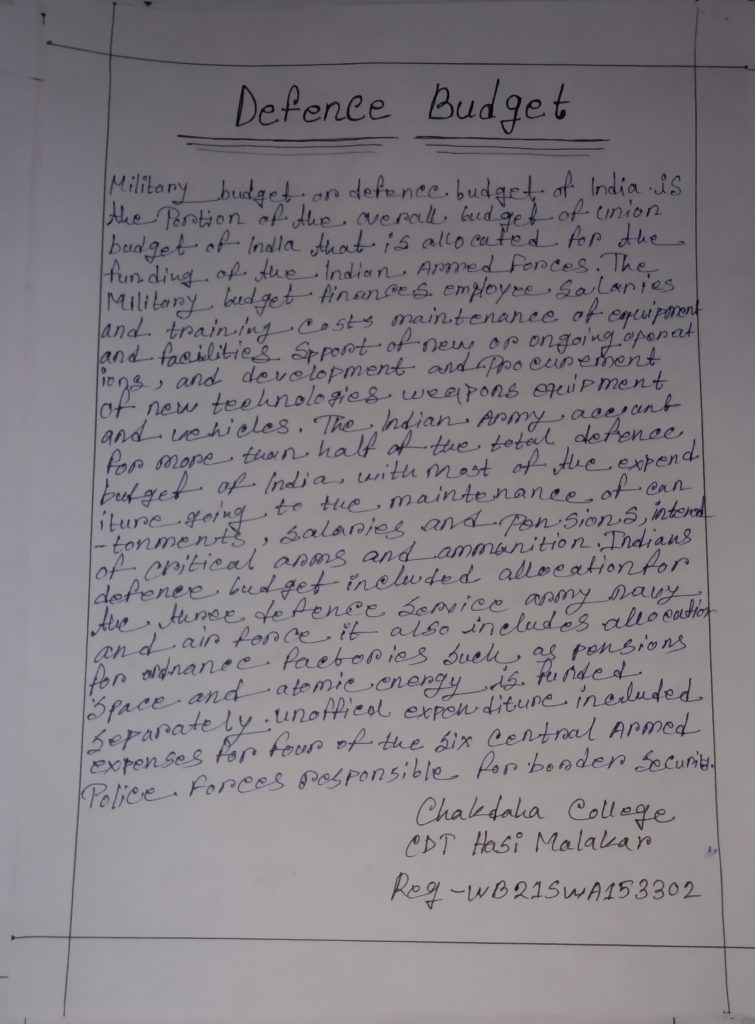 Defence Budget
Military budget or defence budget of India is
the Portion of the overall budget of union
budget of India that is allocated for the
funding of the Indian Armed Forces. The
Military budget finances employee salaries
and training costs maintenance of equipment
and facilities spport of new or ongoing operat
ions, and development and procurement
of new technologies weapons equipment
and vehicles. The Indian Army account
for more than half of the total defence
budget of India with most of the expend
iture going to the maintenance of can
-tonments, salaries and pensions,
of critical arms and ammunition. Indians
defence budget included allocation for
the three defence service army navy
and air force it also includes allocation
for ordnance factories such as pensions
space and atomic energy is funded
separately. unoffical expenditure included
expenses for four of the six central Armed
Police Forces responsible for border
Chakdaha College
CDT Hasi Malakar
Reg -WB21SWA153302